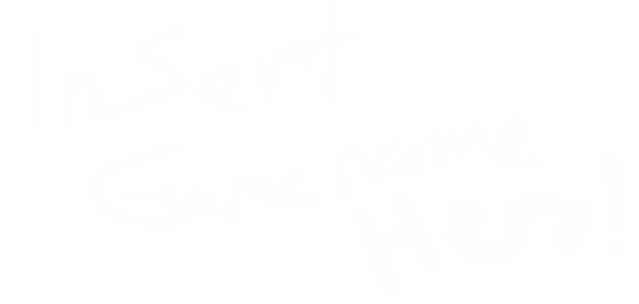 Insert
Game name
Here!